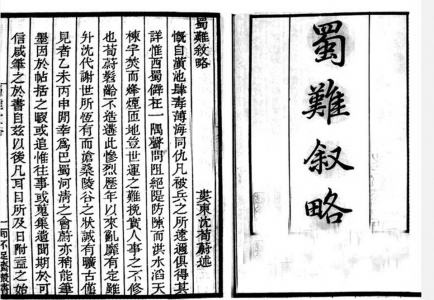 蜀難叙略
蜀難敘略
婁東沈荀蔚述
慨自潢池肆毒薄海同仇凡被兵之所遠邇俱得其
詳惟西蜀僻在一隅聲問阻絕隄防隙而洪水滔天
棟宇焚而烽煙匝地豈世運之難挽實人事之不修
也荀蔚髫齡不造遘此慘烈歷年以來亂靡有定雖
升沈代謝世所恆有而滄桑陵谷之狀誠有曠古僅
見者乙未丙申間幸為巴蜀河清之會蔚亦稍能筆
墨因於帖括之暇或追惟往事或蒐集遺聞期於可
信咸筆之於書自茲以後凡耳目所及日附益之始
知不足齋叢書